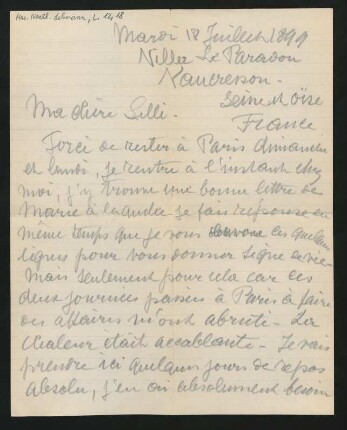 Mardi 18 Juillet 1899
Villa Le Paradou
Vaucresson.
Seine et Oise
France
Ma chère Lilli.
Forcé de rester à Paris dimanche
et lundi, je rentre à l'instant chez
moi, j'y trouve une bonne lettre de
Marie à laquelle je fais réponse en
même temps que je vous envoie ces quelques
lignes pour vous donner signe de vie
Mais seulement pour cela car ces
deux journées passées à Paris à faire
des affaires m'ont abruti - La
chaleur était accablante - Je vais
prendre ici quelques jours de repos
absolu, j'en ai absolument besoin